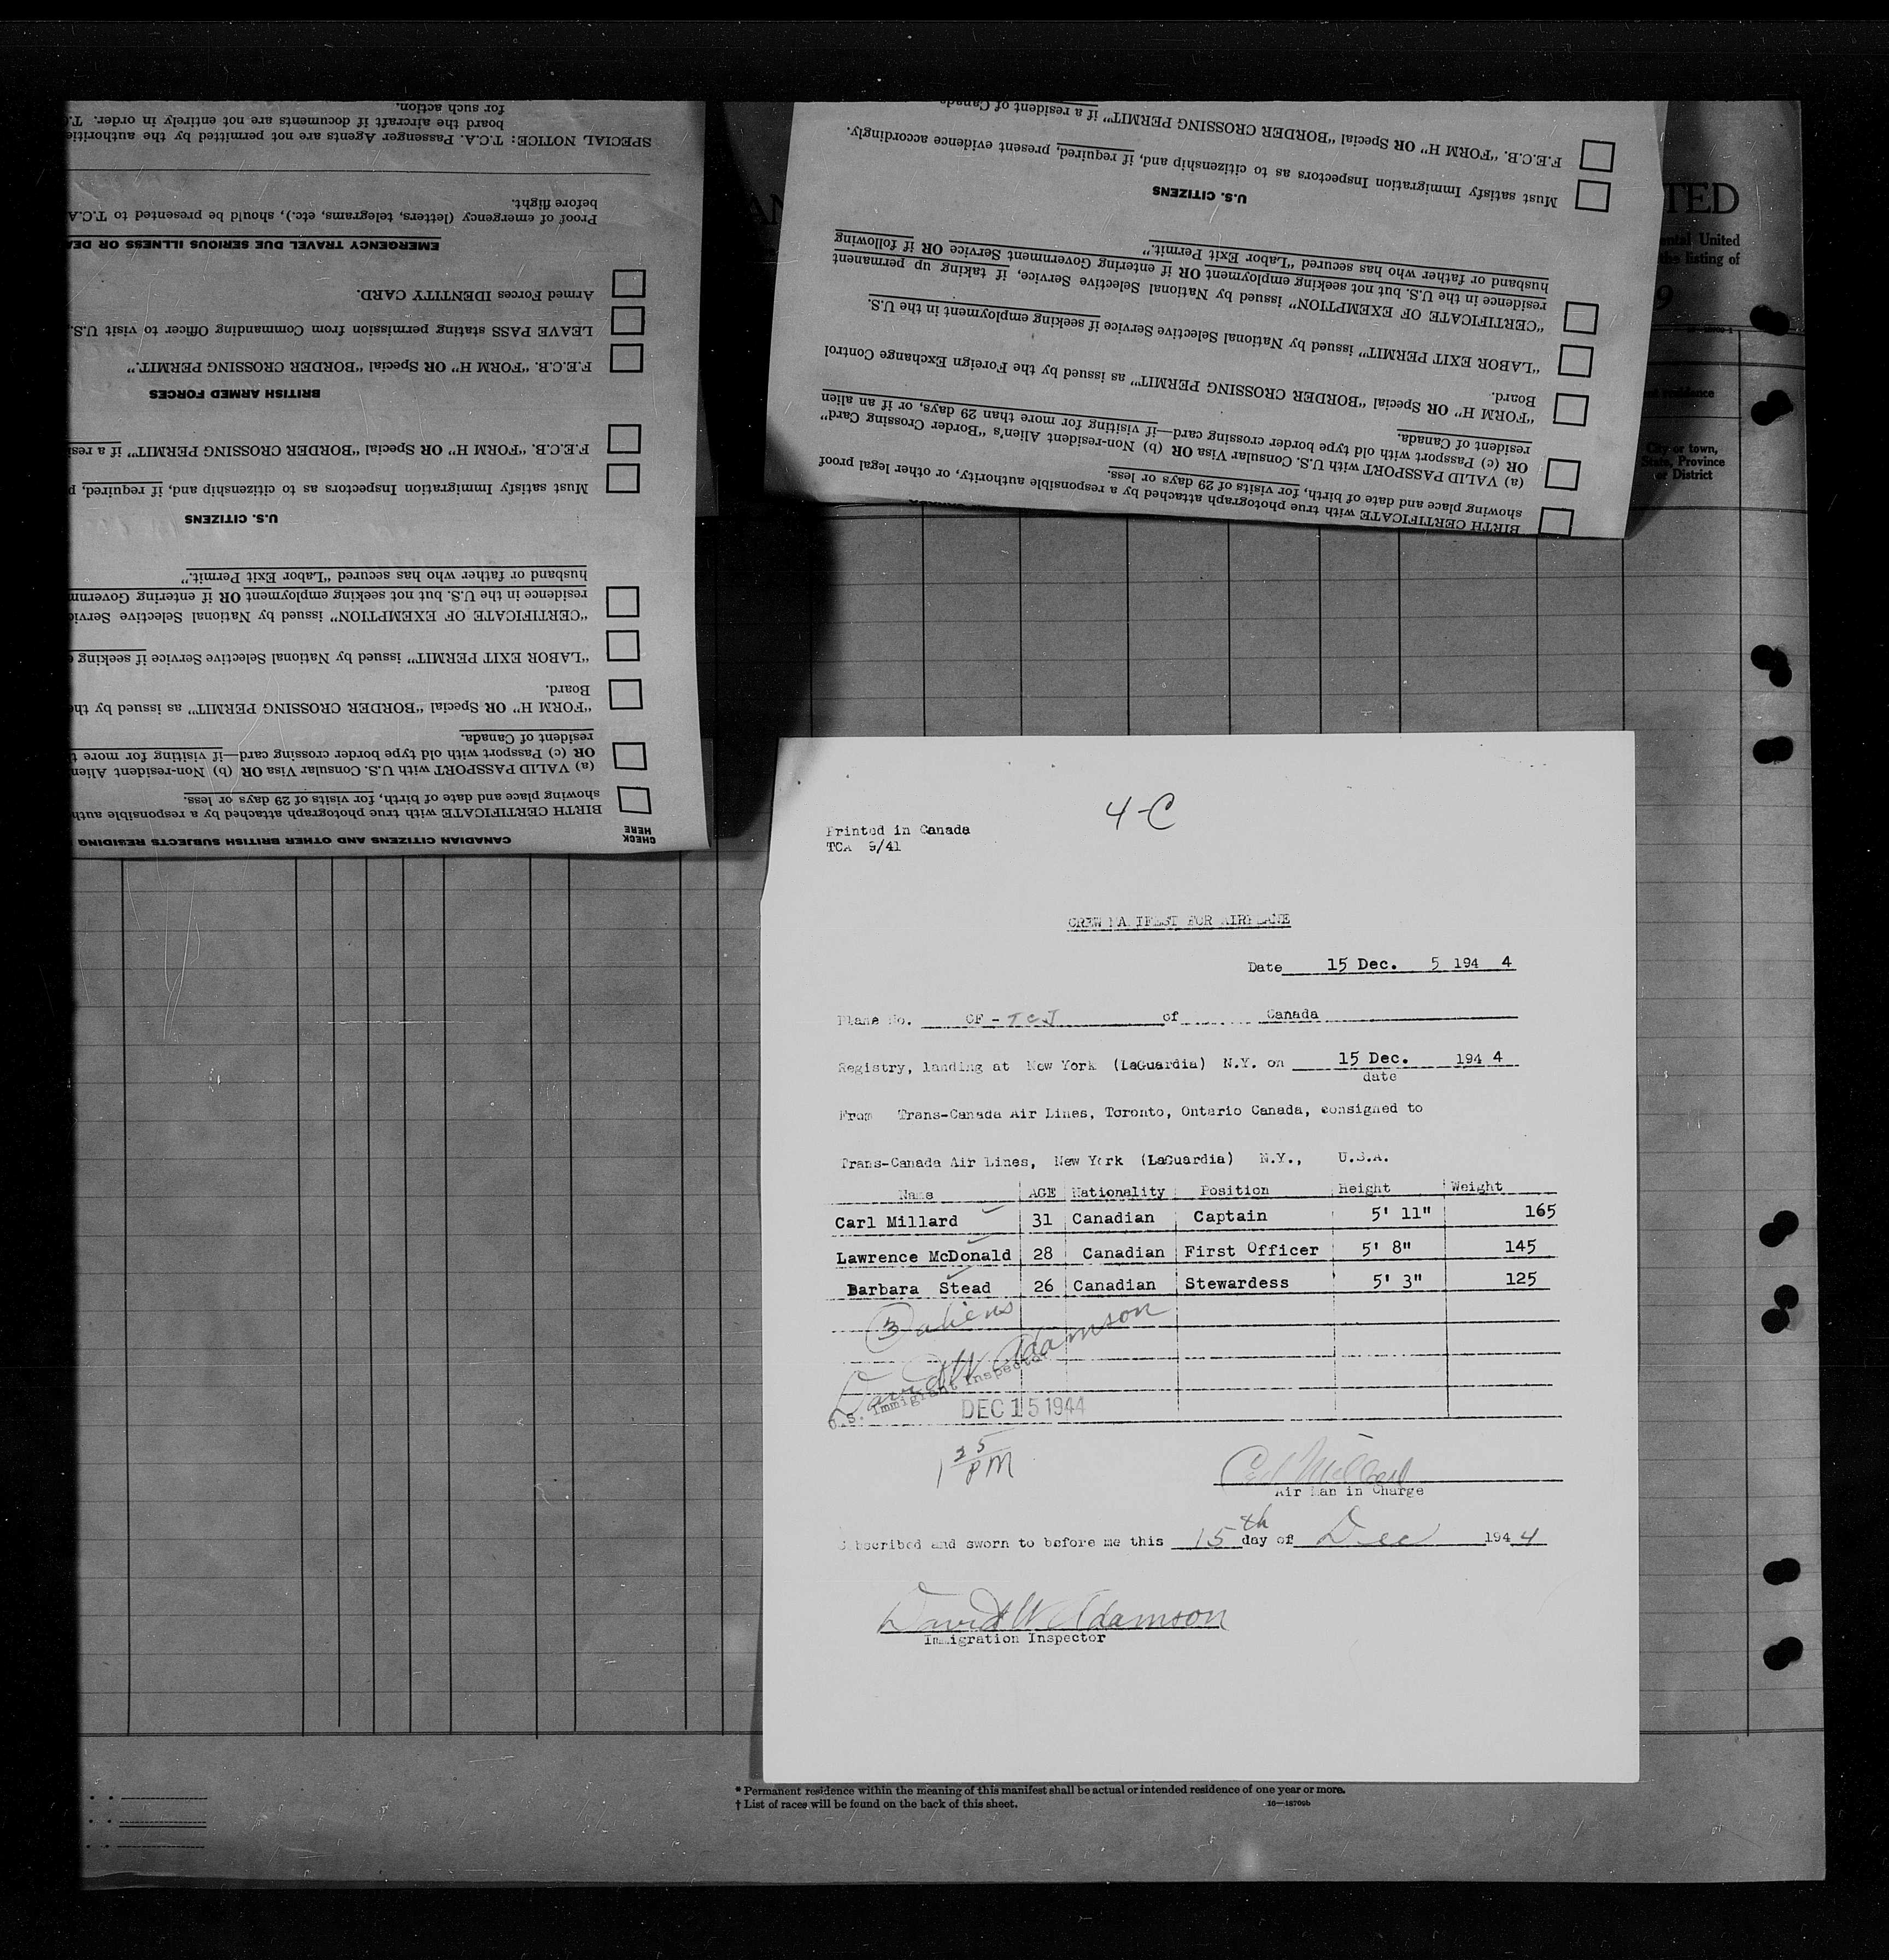 CHECK
HERE
CANADIAN CITIZENS AND OTHER BRITISH SUBJECTS RESIDING
BIRTH CERTIFICATE with true photograph attached by a responsible auth
showing place and date of birth, for visits of 29 days or less.
(a) VALID PASSPORT with U.S. Consular Visa OR (b) Non-resident Alien
OR (c) Passport with old type border crossing card—if visiting for more t
resident of Canada.
"FORM H" OR Special "BORDER CROSSING PERMIT" as issued by the
Board.
"LABOR EXIT PERMIT" issued by National Selective Service if seeking
"CERTIFICATE OF EXEMPTION" issued by National Selective Servic
residence in the U.S. but not seeking employment OR if entering Governm
husband or father who has secured "Labor Exit Permit."
U.S. CITIZENS
Must satisfy Immigration Inspectors as to citizenship and, if required, p
F.E.C.B. "FORM H" OR Special "BORDER CROSSING PERMIT" if a resi
BRITISH ARMED FORCES
F.E.C.B. "FORM H" OR Special "BORDER CROSSING PERMIT."
LEAVE PASS stating permission from Commanding Officer to visit U.S.
Armed Forces IDENTITY CARD.
EMERGENCY TRAVEL DUE SERIOUS ILLNESS OR DEA
Proof of emergency (letters, telegrams, etc.), should be presented to T.C.A
before flight.
SPECIAL NOTICE: T.C.A. Passenger Agents are not permitted by the authoritie
board the aircraft if documents are not entirely in order. T.C
for such action.
BIRTH CERTIFICATE with true photograph attached by a responsible authority, or other legal proof
showing place and date of birth, for visits of 29 days or less.
(a) VALID PASSPORT with U.S. Consular Visa OR (b) Non-resident Alien's "Border Crossing Card"
OR (c) Passport with old type border crossing card—if visiting for more than 29 days, or if an alien
resident of Canada.
"FORM H" OR Special "BORDER CROSSING PERMIT" as issued by the Foreign Exchange Control
Board.
"LABOR EXIT PERMIT" issued by National Selective Service if seeking employment in the U.S.
"CERTIFICATE OF EXEMPTION" issued by National Selective Service, if taking up permanent
residence in the U.S. but not seeking employment OR if entering Government Service OR if following
husband or father who has secured "Labor Exit Permit."
U.S. CITIZENS
Must satisfy Immigration Inspectors as to citizenship and, if required, present evidence accordingly.
F.E.C.B. "FORM H" OR Special "BORDER CROSSING PERMIT" if a resident of Canada
TED
ental United
the listing of
9
residence
City or town,
State, Province
or District
4-C
Printed in Canada
TCA 9/41
CREW MANIFEST FOR AIRPLANE
Date 15 Dec. 5 194 4
Plane No. CF - TCJ of Canada
Registry, landing at New York (LaGuardia) N.Y. on 15 Dec. 194 4
date
From Trans-Canada Air Lines, Toronto, Ontario Canada, consigned to
Trans-Canada Air Lines, New York (LaGuardia) N.Y., U.S.A.
Name AGE Nationality Position Height Weight
Carl Millard 31 Canadian Captain 5' 11" 165
Lawrence McDonald 28 Canadian First Officer 5' 8" 145
Barbara Stead 26 Canadian Stewardess 5' 3" 125
3 aliens
David W Adamson
U.S. Immigrant Inspector
DEC 15 1944
1 25 PM
Carl Millard
Air Man in Charge
Subscribed and sworn to before me this 15th day of Dec 194 4
David W Adamson
Immigration Inspector
* Permanent residence within the meaning of this manifest shall be actual or intended residence of one year or more.
† List of races will be found on the back of this sheet.
16—18709b